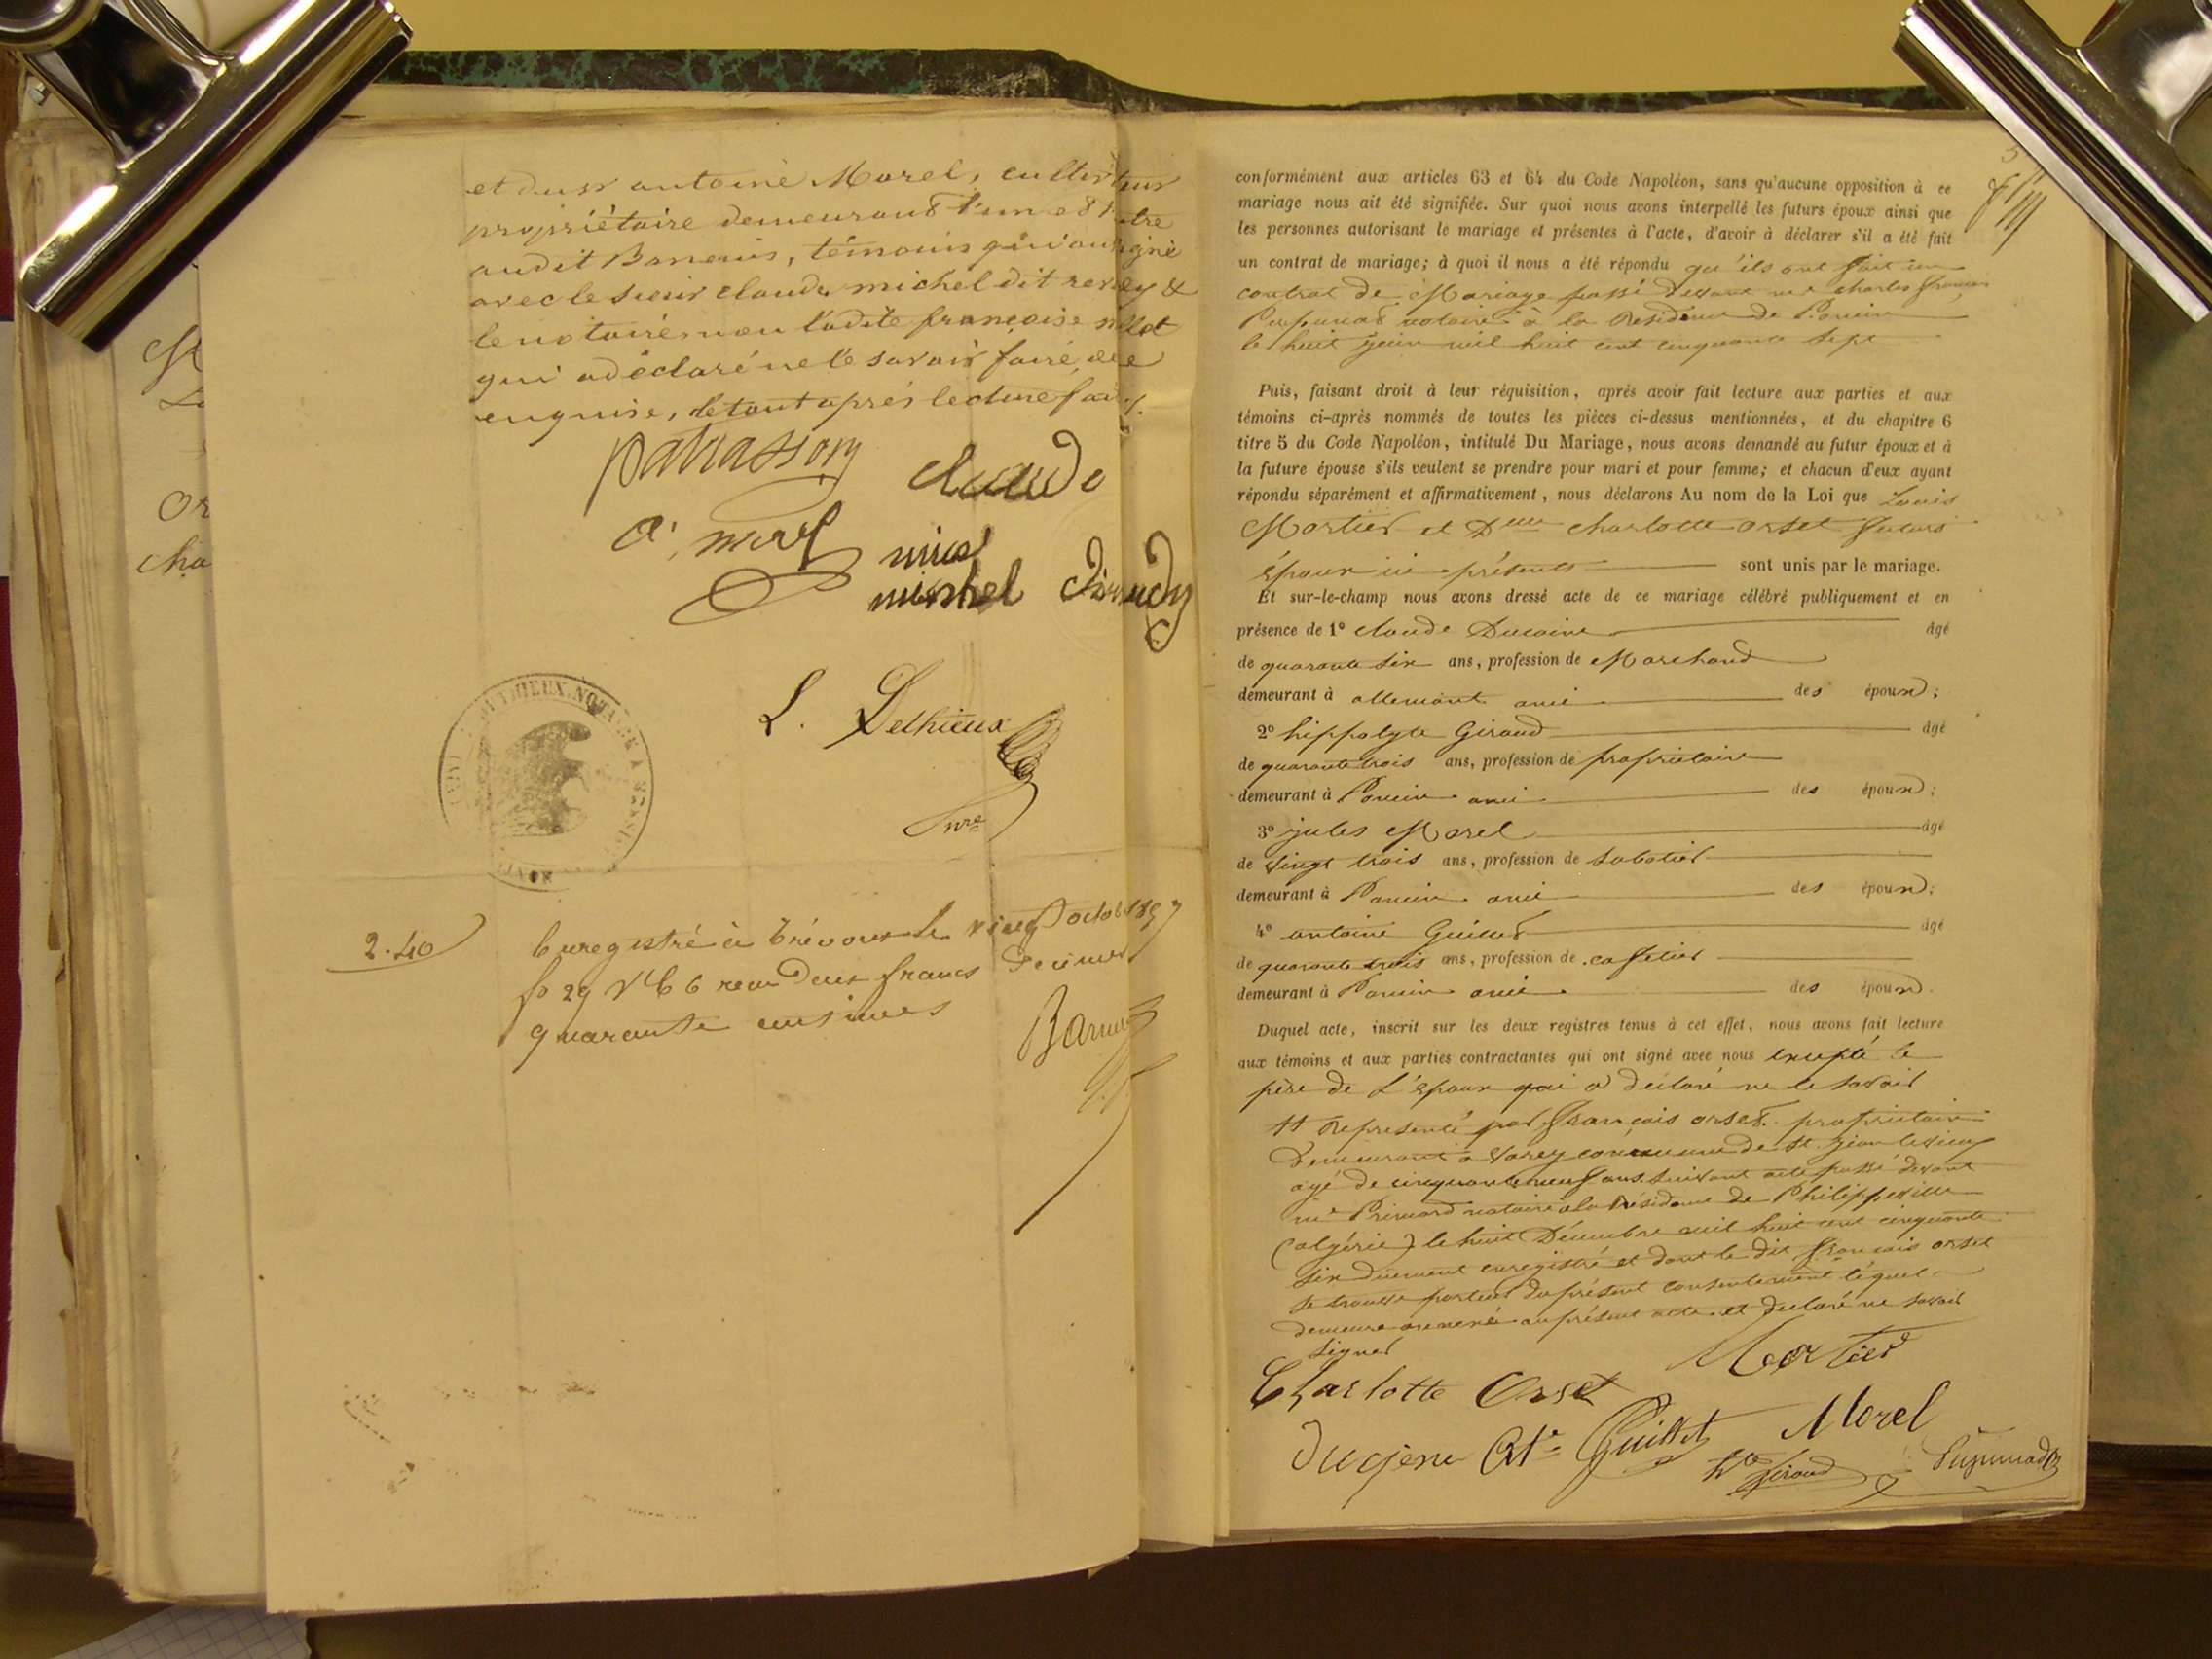 et du sr antoine Morel, cultivateur
propriétaire demeurant l'un et l'autre
audit Baneins, témoins qui ont signé
avec le sieur claude michel dit rerey &
le notaire non ladite françoise
qui a déclaré ne le savoir faire, de ce
enquise, le tout après lecture faite.
claude
a. morel
michel
L. Dethieux
nre
2.40
Enregistré à Trévoux le vingt octobre 1857
fo 29 Vo C 6 reçu Deux francs Décimes
quarante centimes
NOTAIRE A
M
Or
cha
conformément aux articles 63 et 64 du Code Napoléon, sans qu'aucune opposition à ce
mariage nous ait été signifiée. Sur quoi nous avons interpellé les futurs époux ainsi que
les personnes autorisant le mariage et présentes à l'acte, d'avoir à déclarer s'il a été fait
un contrat de mariage; à quoi il nous a été répondu qu'ils ont fait un
contrat de Mariage passé devant me charles
notaire à la Résidence de Poncin
le huit juin mil huit cent cinquante sept
Puis, faisant droit à leur réquisition, après avoir fait lecture aux parties et aux
témoins ci-après nommés de toutes les pièces ci-dessus mentionnées, et du chapitre 6
titre 5 du Code Napoléon, intitulé Du Mariage, nous avons demandé au futur époux et à
la future épouse s'ils veulent se prendre pour mari et pour femme; et chacun d'eux ayant
répondu séparément et affirmativement, nous déclarons Au nom de la Loi que Louis
Mortier et Delle charlotte orset futurs
époux ici présents sont unis par le mariage.
Et sur-le-champ nous avons dressé acte de ce mariage célébré publiquement et en
présence de 1º claude âgé
de quarante six ans, profession de Marchand
demeurant à allemant ami des époux;
2º hippolyte Giraud âgé
de quarante trois ans, profession de propriétaire
demeurant à Poncin ami des époux;
3º jules Morel âgé
de vingt trois ans, profession de sabotier
demeurant à Poncin ami des époux;
4º antoine Guillet âgé
de quarante trois ans, profession de cafetier
demeurant à Poncin ami des époux.
Duquel acte, inscrit sur les deux registres tenus à cet effet, nous avons fait lecture
aux témoins et aux parties contractantes qui ont signé avec nous excepté le
père de L'époux qui a déclaré ne le savoir
++ représenté par françois orset propriétaire
Demeurant à Varey commune de St jean le vieux
agé de cinquante neuf ans suivant acte passé devant
me Primard notaire à la Résidence de Philippeville
(algérie) le huit Décembre mil huit cent cinquante
six duement enregistré et dont le dit françois orset
se trouve porteur du présent consentement lequel
demeure annexé au présent acte et déclaré ne savoir
signer
Mortier
Charlotte Orset
Morel
Guillet
Hte Giraud